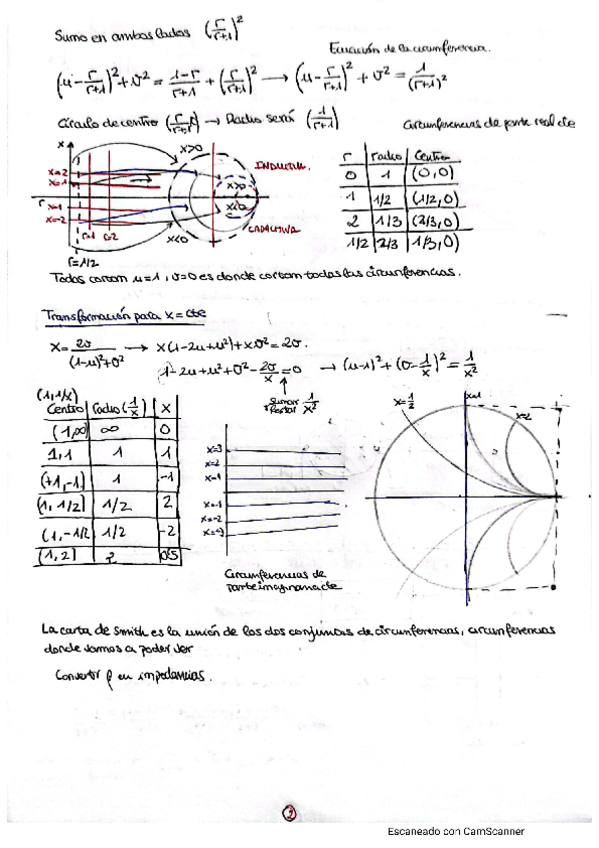 Sumo en ambos lados (r/r+1)²
Ecuación de la circunferencia.
(u - r/r+1)² + v² = 1-r/r+1 + (r/r+1)² → (u - r/r+1)² + v² = 1/(r+1)²
Círculo de centro → Radio será (1/r+1)
Circunferencias de parte real cte
r radio Centro
0 1 (0,0)
1 1/2 (1/2,0)
2 1/3 (2/3,0)
1/2 2/3 1/3,0)
x
x>0
INDUCTIVA.
x=2
x=1
x>0
r
x<0
x=-2
CAPACITIVA
r=1 r=2
x<0
r=1/2
Todas cortan u=1, v=0 es donde cortan todas las circunferencias.
Transformación para x = cte
x = 2v/(1-u)²+v² → x(1-2u+u²)+xv² = 2v.
1-2u+u²+v²-2v/x=0 → (u-1)²+(v-1/x)² = 1/x²
Sumar Restar 1/x²
(1,1/x)
Centro radio(1/x) x
(1,∞) ∞ 0
1,1 1 1
(+1,-1) 1 -1
(1,1/2) 1/2 2
(1,-1/2 1/2 -2
(1,2) 2 0'5
x=3
x=2
x=1
x=-1
x=-2
x=-3
x=1/2
x=1
x=2
Circunferencias de
parte imaginaria cte
La carta de Smith es la unión de los dos conjuntos de circunferencias, circunferencias
donde vamos a poder ver
Convertir ρ en impedancias.
2
Escaneado con CamScanner